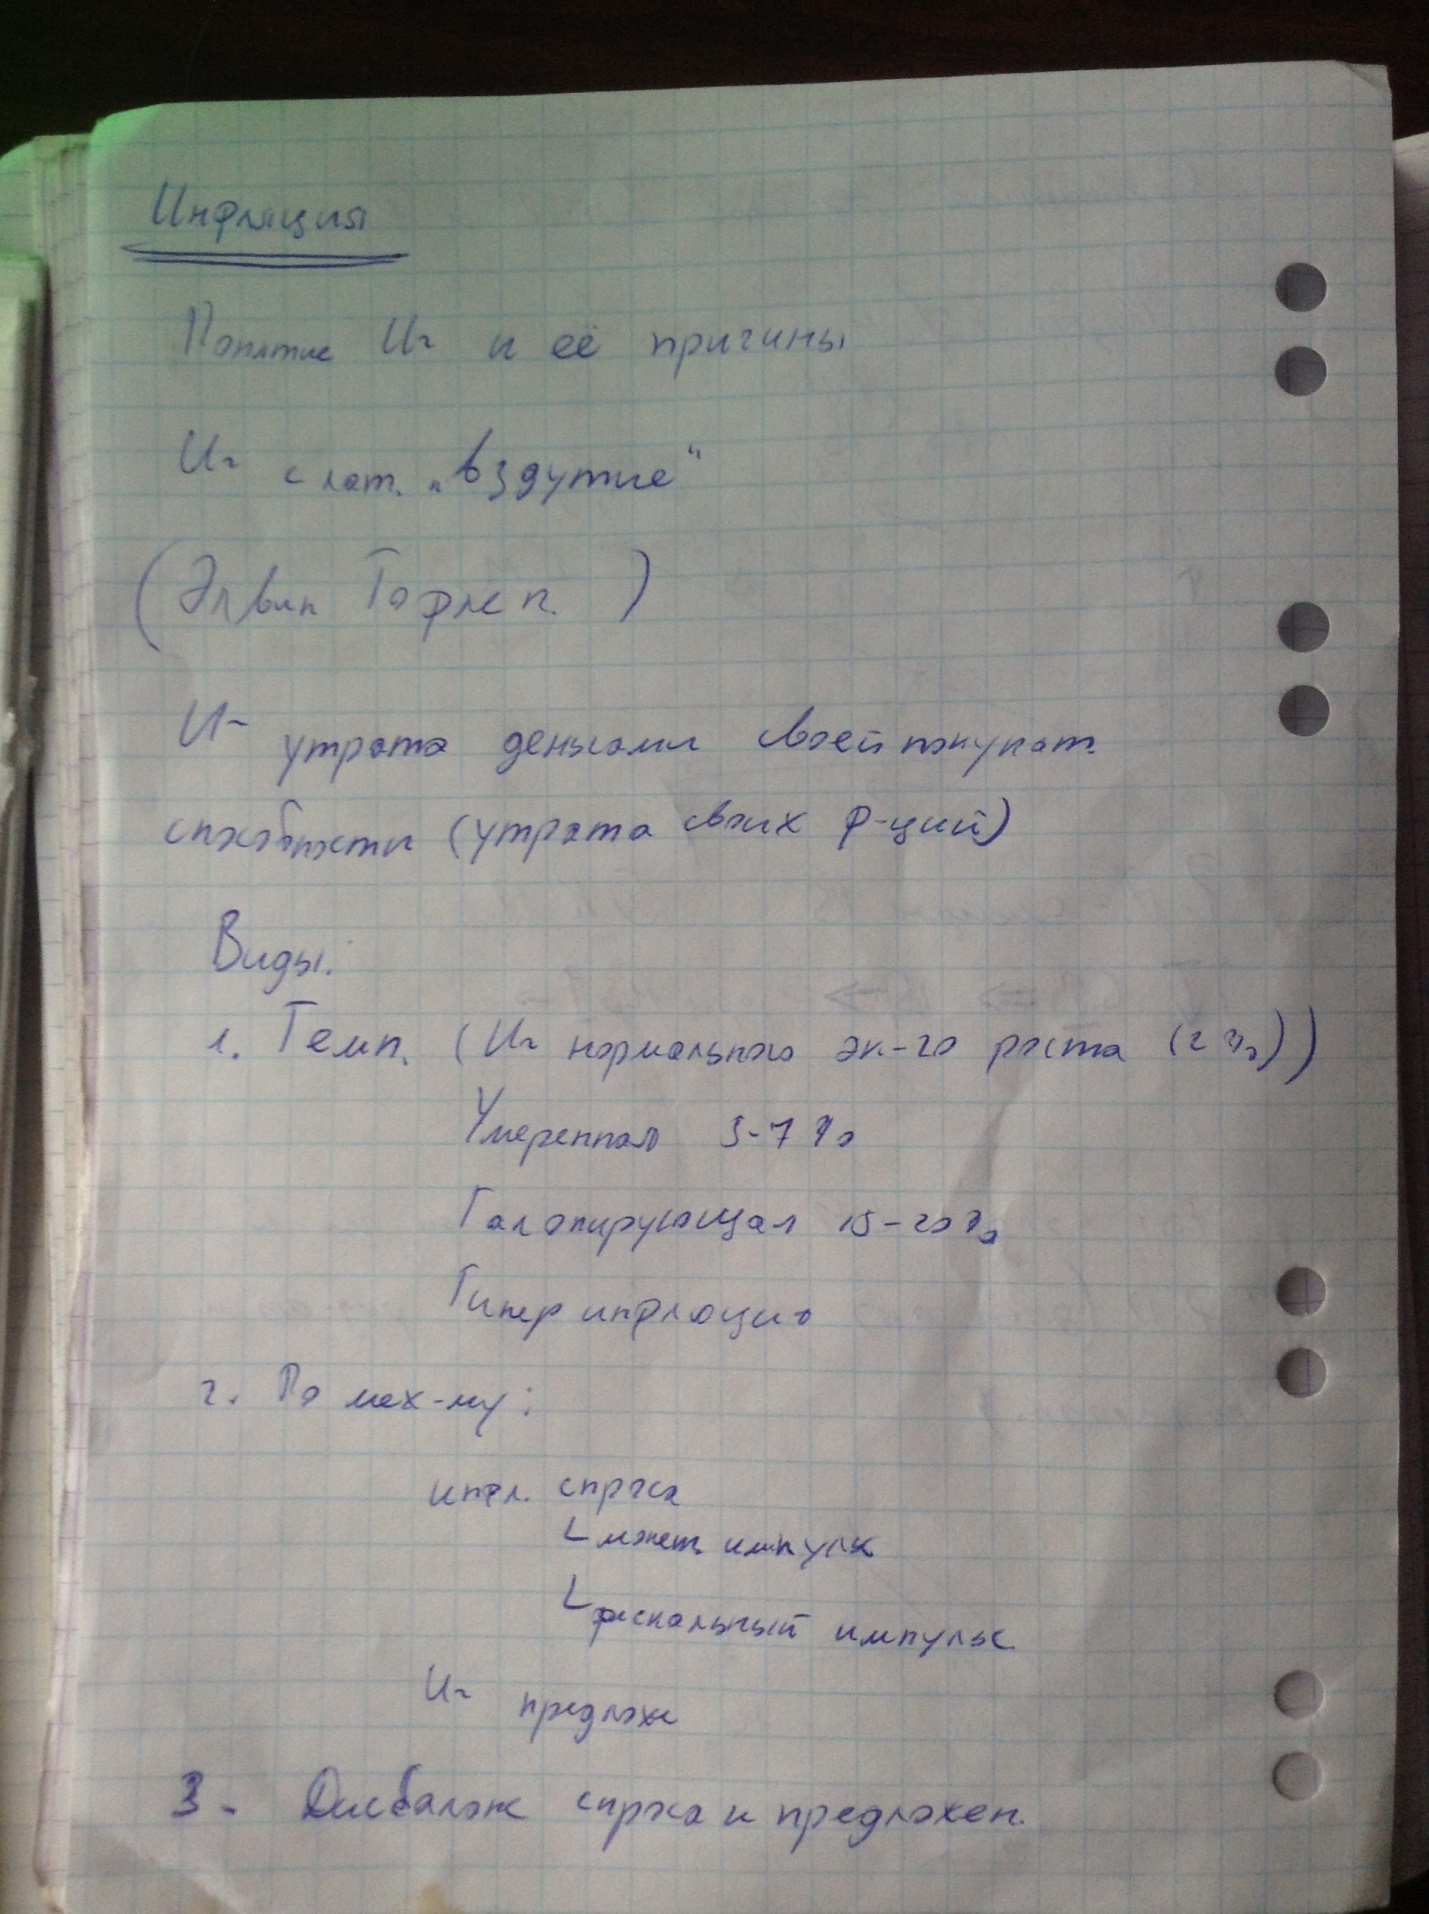 Инфляция
Понятие И~ и её причины
И~ с лат. „вздутие“
(Элвин Тофлер)
И~ утрата деньгами своей покупат.
способности (утрата своих ф-ций)
Виды:
1. Темп. (И~ нормального эк-го роста (2%))
Умеренная 3-7%
Галопирующая 15-20%
Гипер инфляция
2. По мех-му:
инфл. спроса
импульс
фискальный импульс
И~ предлож
3. Дисбаланс спроса и предложен.